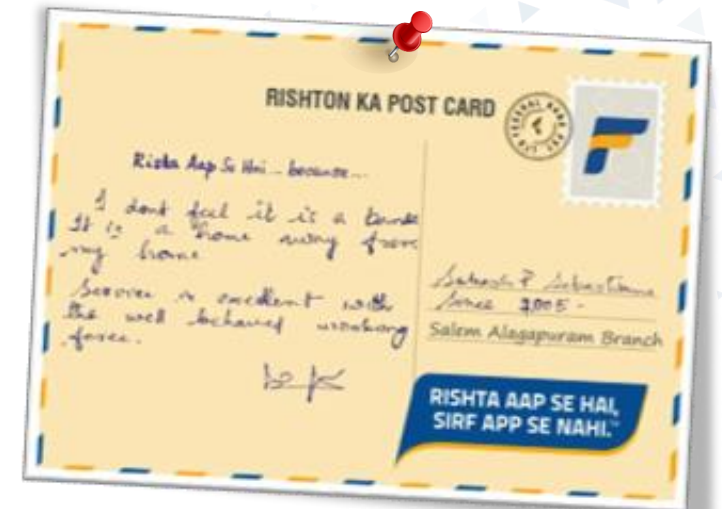 RISHTON KA POST CARD
Rishta Aap Se Hai - because...
I dont feel it is a bank
It is a home away from
my home
Service is excellent with
the well behaved working
force.
Sebastian
Since 2005-
Salem Alagapuram Branch
RISHTA AAP SE HAI,
SIRF APP SE NAHI.